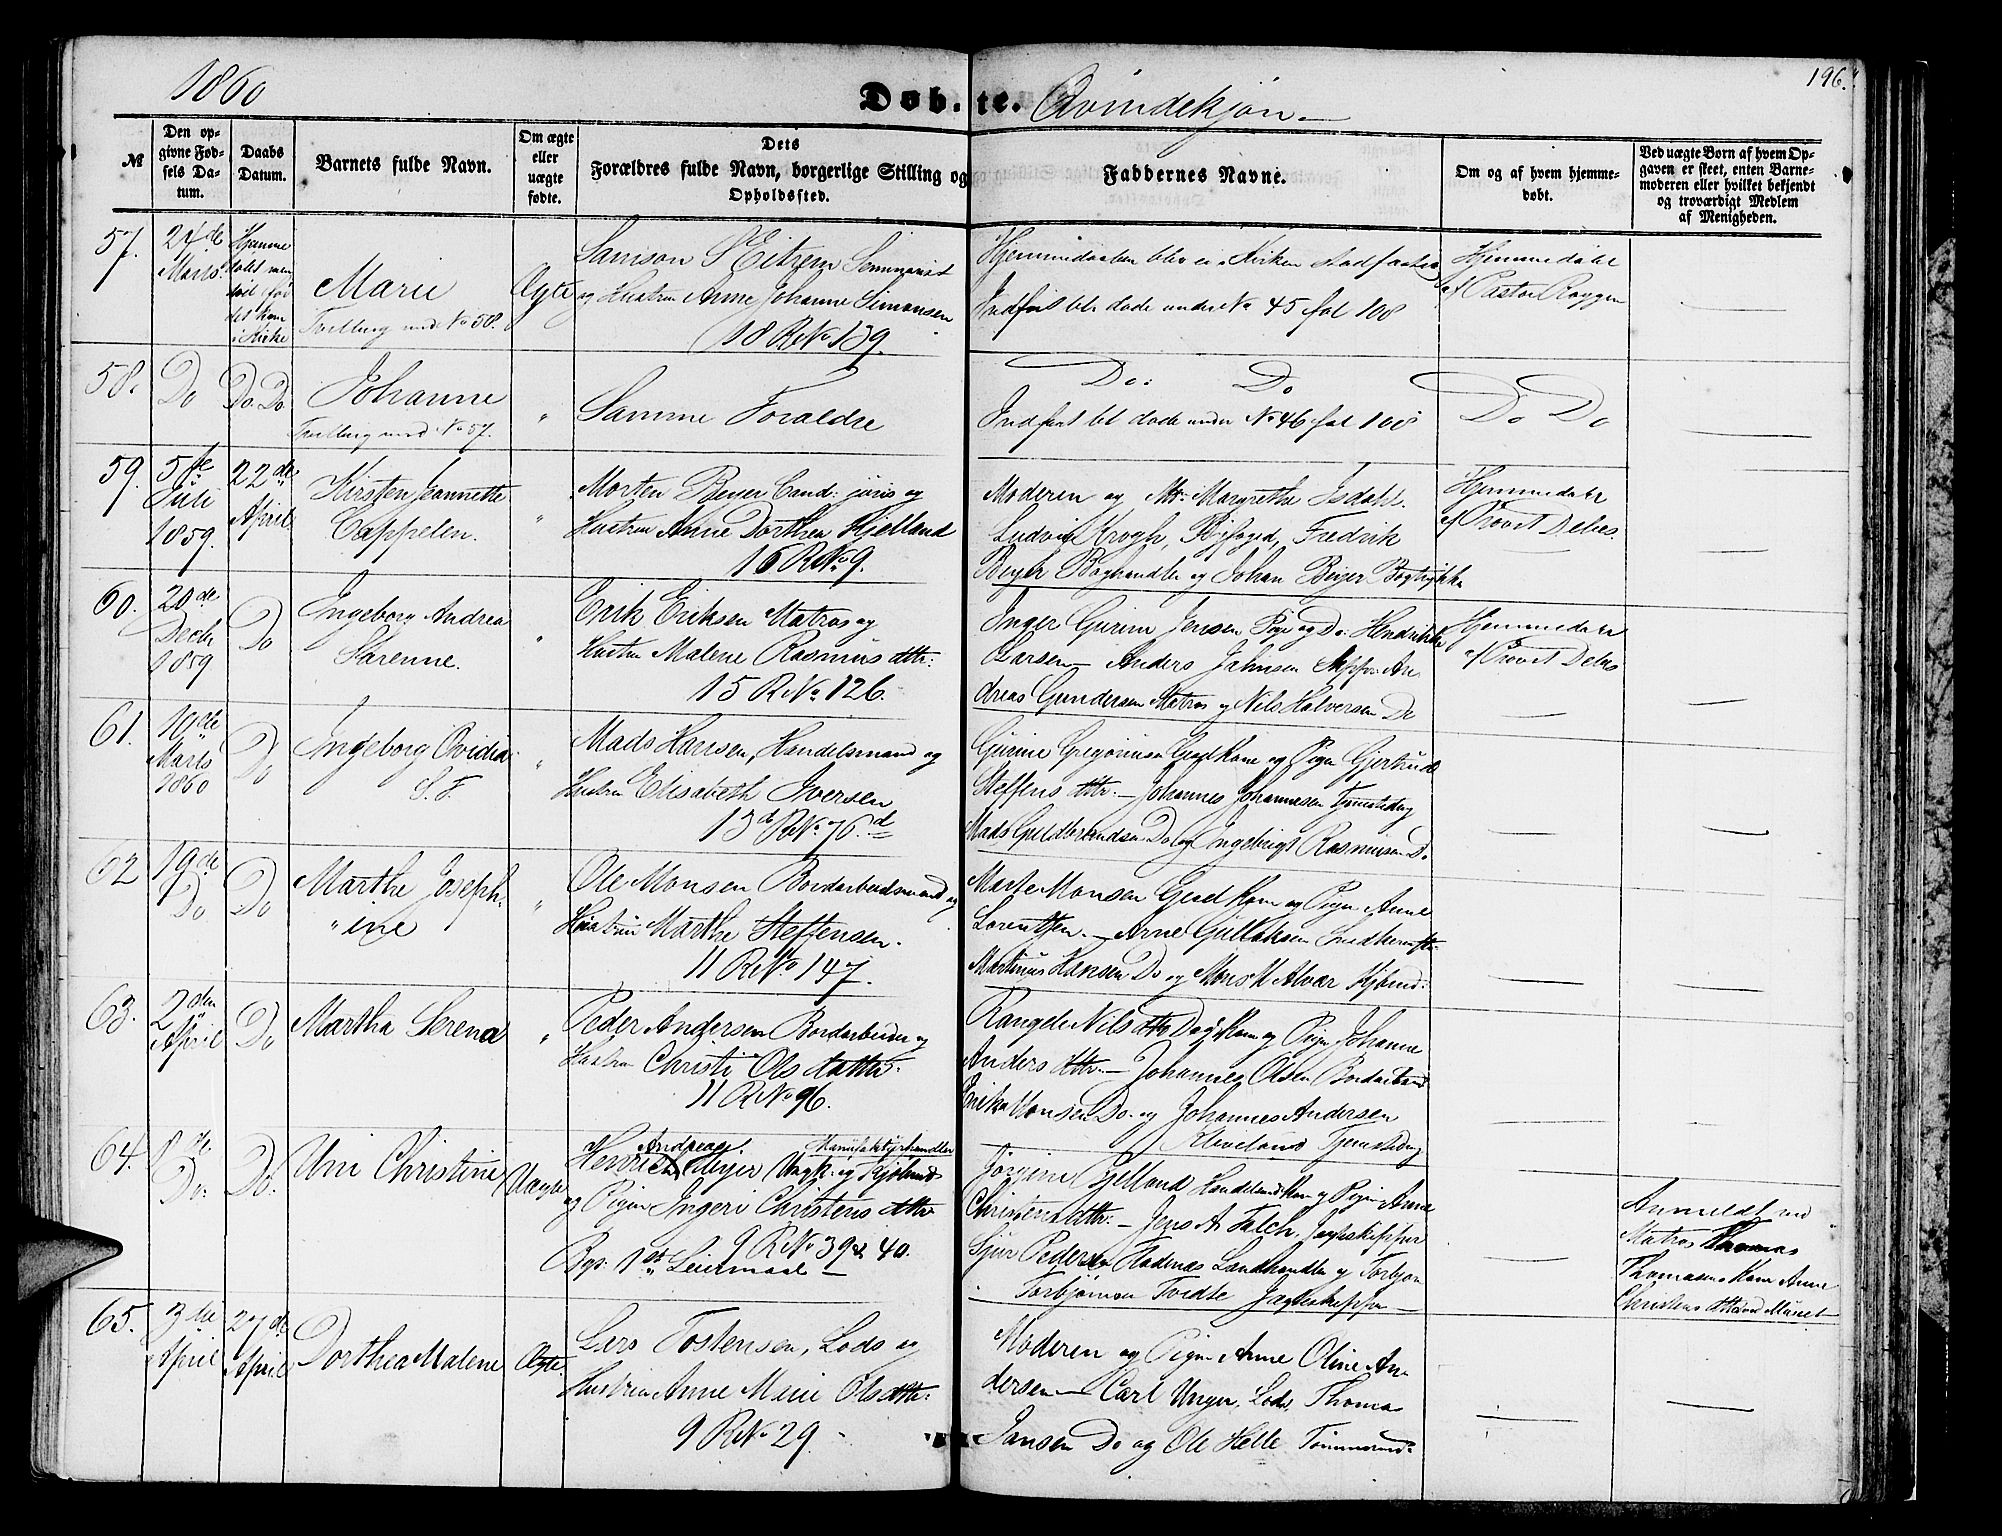 1860
Døb-te. Qvindekjøn.
196.
№
Den op-
givne Fød-
sels Da-
tum.
Daabs
Datum.
Barnets fulde Navn.
Om ægte
eller
uægte
fødte.
Dets
Forældres fulde Navn, borgerlige Stilling og
Opholdssted.
Faddernes Navne.
Om og af hvem hjemme-
døbt.
Ved uægte Børn af hvem Op-
gaven er skeet, enten Barne-
moderen eller hvilket bekjendt
og troværdigt Medlem
af Menigheden.
57.
24de
Marts
Hjemme
døbt men
død før
det kom
i Kirke
Marie
Tvilling med No 58.
Ægte
Samson S Eitzen Seminarist
og Hustru Anne Johanne Simonsen
18 R No 139.
Hjemmedaaben blev ei i Kirken stadfæstet
Indført bl: døde under No 45 fol 108
Hjemmedøbt
af Pastor
58.
Do
Do Do
Johanne
Tvilling med No 57.
"
Samme Foraldre
Do: Do
Indført bl: døde under No 46 fol 108
Do Do
59.
5te
Juli
1859.
22de
April
Kirsten Jeannette
Cappelen.
"
Morten Beyer Cand: juris og
Hustru Anne Dorthea Kjelland
16 R No 9.
Moderen og M: Margrethe Isdahl.
Ludvig Krogh, Byfoged, Fredrik
Beyer Boghandler og Johan Beyer Bogtrykker
Hjemmedøbt
af Provst Debes.
60.
20de
Decb
1859
Do
Ingeborg Andrea
Sørenne.
"
Erik Eriksen Matros og
Hustru Malene Rasmus dttr:
15 R No 126.
Inger Gurine Jensen Pige og Do: Hendrikke
Larsen – Anders Jahnsen Skipper An-
dreas Gundersen Matros og Nils Halversen Do
Hjemmedøbt
af Provst Debes
61.
10de
Marts
1860
Do
Ingeborg Ovidia
S. F.
"
Mads Hansen, Handelsmand og
Hustru Elisabeth Iversen
13 R No 76.
Gurine Gregoriusen Kone og Pigen Gjertrud
Steffens dttr. – Johannes Johannesen Tjenestedreng
Mads Guldbrandsen Do og Ingebrigt Rasmusen Do
62
19de
Do
Do
Marthe Joseph-
"ine
"
Ole Monsen Bordarbeidsmand og
Hustru Marthe Steffensen.
11 R No 147.
Marte Monsen Kone og Pigen Anne
Lorentsen. – Arne Gullaksen
Martinus Hansen Do og Mons M Alvær
63.
2den
April
Do
Martha Serena
"
Peder Andersen Bordarbeider og
Hustru Christi Ols datter.
11 R No 96.
Rangele Nils dttr Kone og Pigen Johanne
Anders dttr – Johannes Olsen Bordarbeid
Erik Monsen Do. og Johannes Andersen
Kleveland Tjenestedreng
64.
8de
Do.
Do.
Uni Christine
Uægte
Andreas Manufakturhandler
Henrich Meyer Ungk: og
og Pigen Ingeri Christens dttr
9 R No 39 & 40.
Bgs: 1ste Leiermaal –
Jørgine Gjelland Handelsmd Kone og Pigen Anne
Christens dttr. – Jens A Falch, Jagteskipper
Sjur Pedersen Fladenæs Landhandler og Torbjørn
Torbjørnsen Tvedte Jagteskipper
Anmeldt ved
Matros Thomas
Thomasens Kone Anne
Christens dttr
65.
3die
April
27de
April
Dorthea Malene
Ægte.
Lars Tostensen, Lods og
Hustru Anne Marie Ols dttr:
9 R No 29.
Moderen og Pigen Anne Oline An-
dersen – Carl Unger, Lods, Thomas
Jansen Do og Ole Helle Tømmermd: